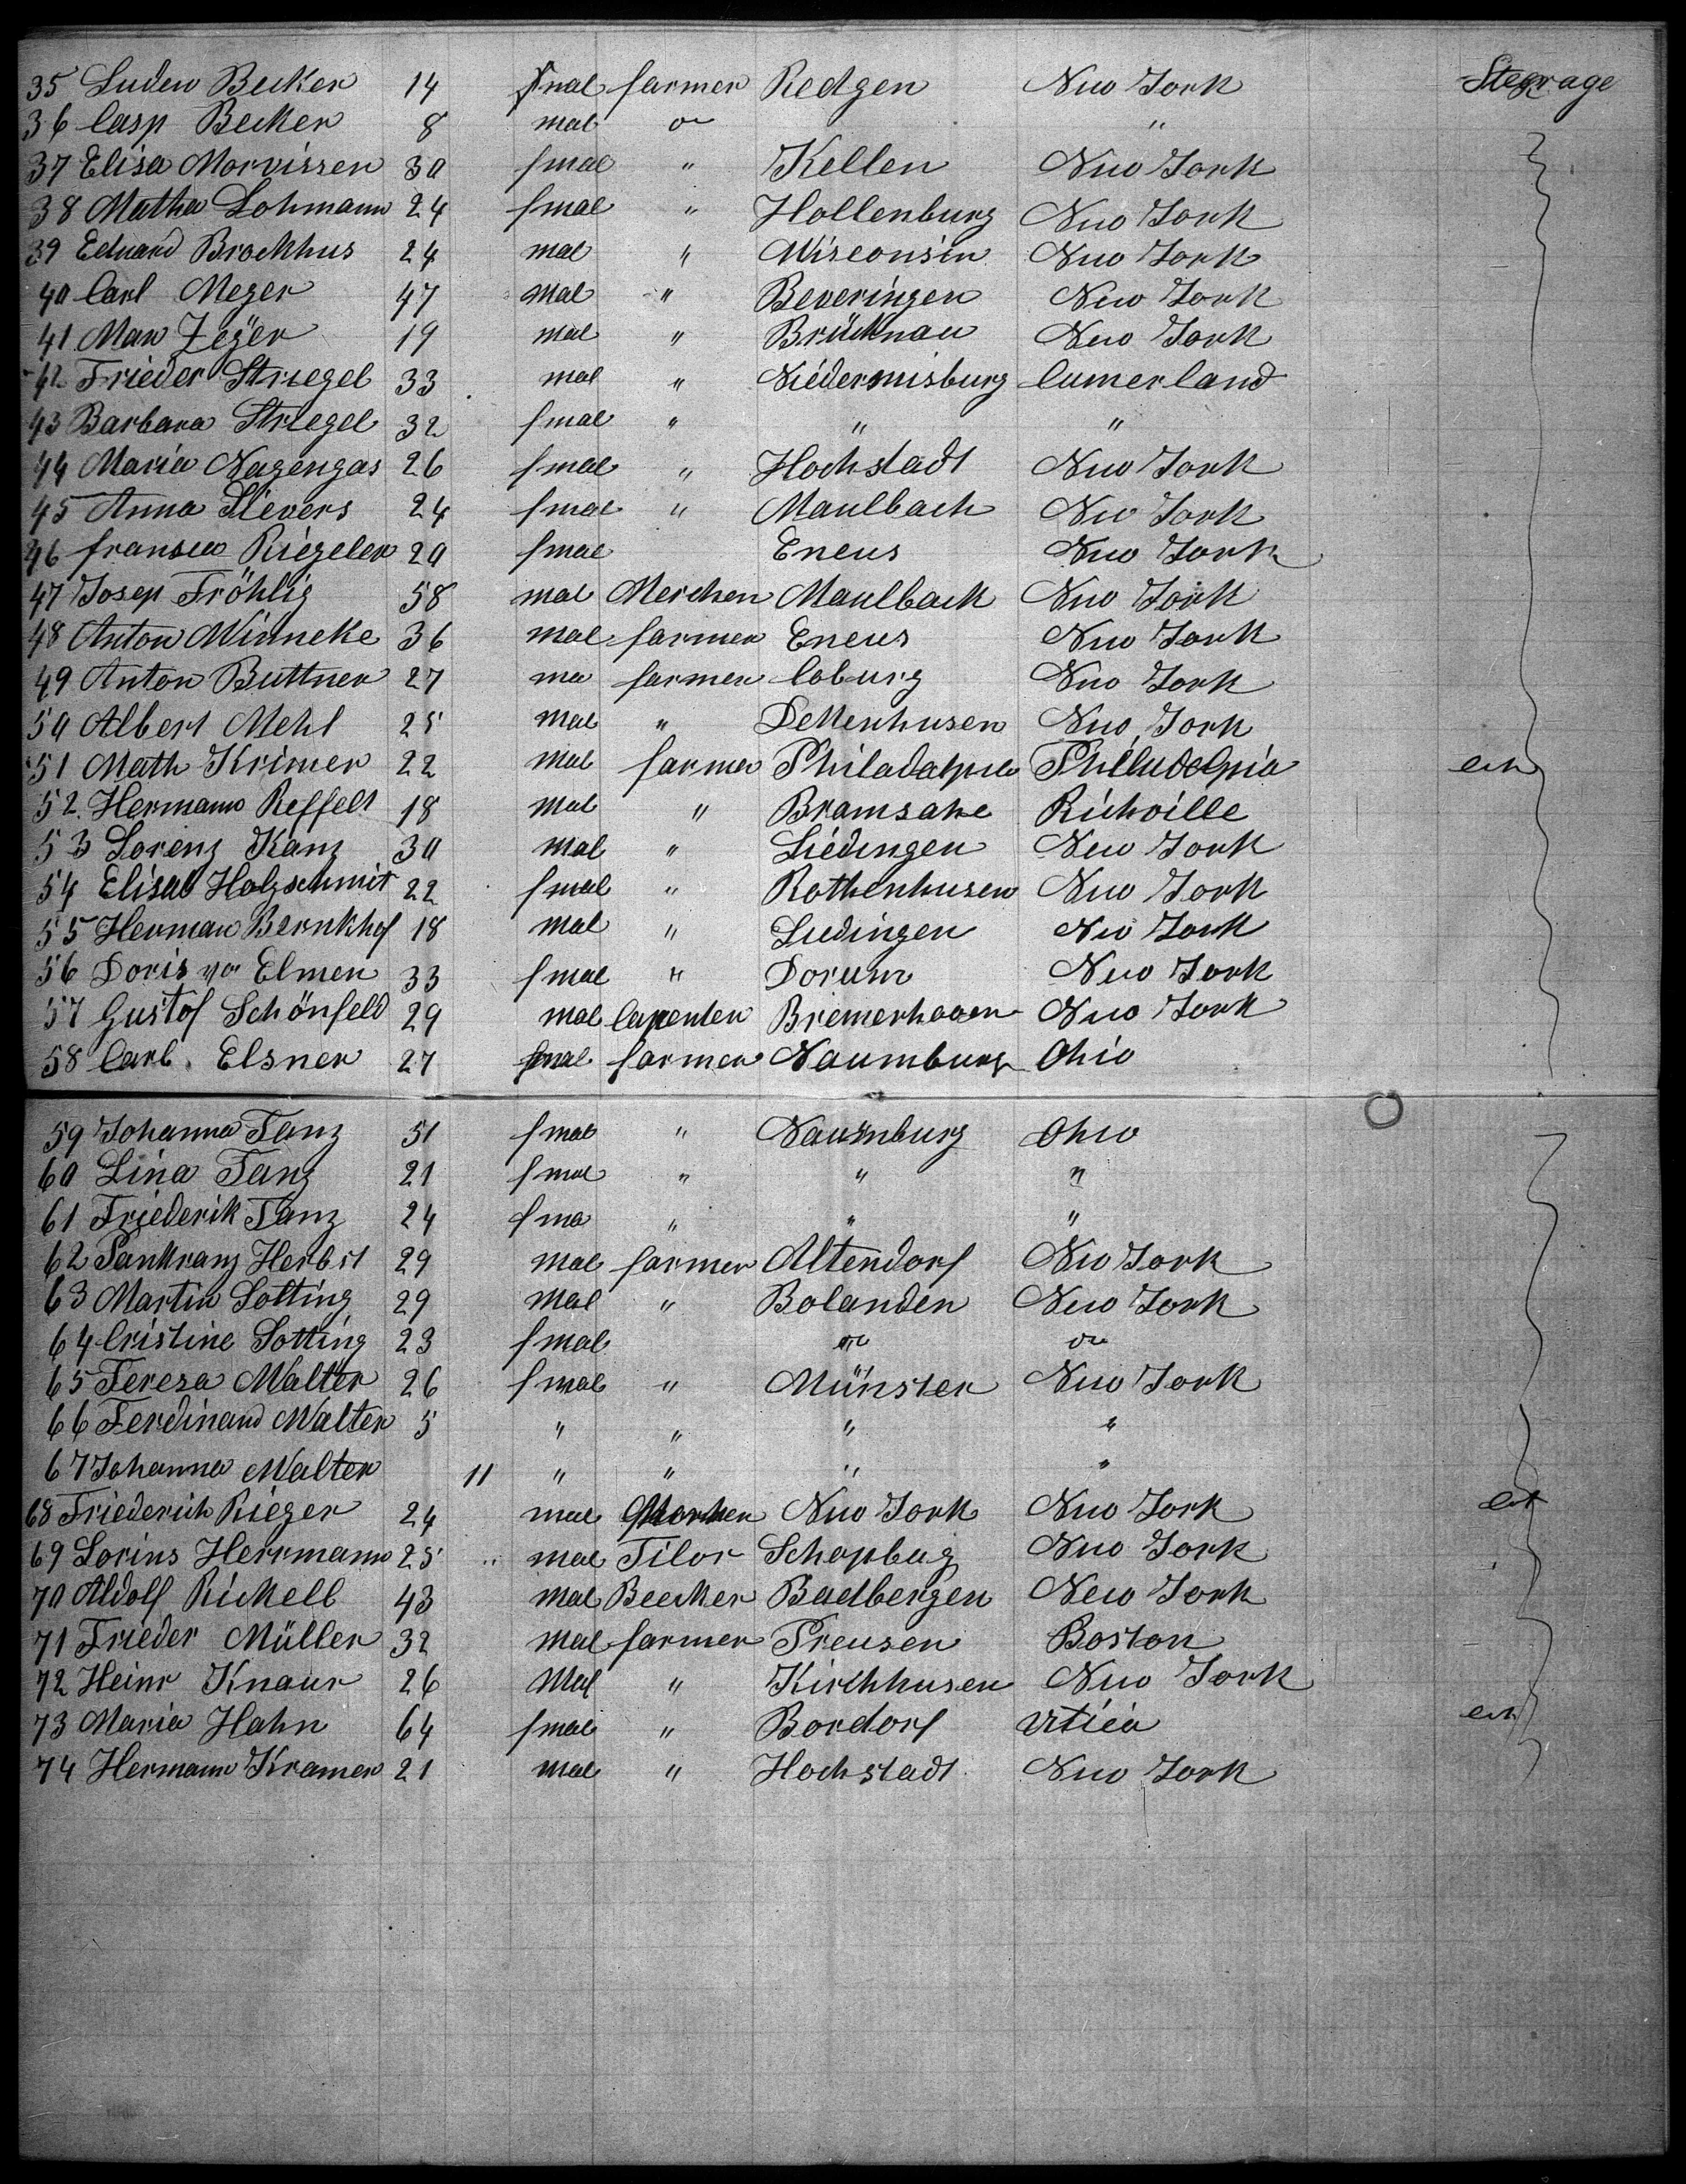 35 Luden Becker 14 fmal farmer Redgen New York Sterrage
36 Casp Becker 8 mal do "
37 Elisa Morvissen 30 fmal " Kellen New York
38 Matha Lohmann 24 fmal " Hollenburg New York
39 Eduard Brockhus 24 mal " Wisconsin New York
40 Carl Meger 47 mal " Beveringen New York
41 Max Zeger 19 mal " Brücknau New York
42 Frieder Striegel 33 mal " Niedermisburg Cumerland
43 Barbara Striegel 32 fmal " " "
44 Maria Nagengas 26 fmal " Hochstadt New York
45 Anna Sievers 24 fmal " Maulbach New York
46 Riegeler 20 fmal Eneus New York
47 Josep Fröhlig 58 mal Merchen Maulback New York
48 Anton Winneke 36 mal farmer Eneus New York
49 Anton Buttner 27 ma farmer Coburg New York
50 Albert Mehl 25 mal " Dettenhusen New York
51 Math Krimer 22 mal farmer Philadalpia Philludelpia
52. Hermann Reffelt 18 mal " Bramsahe Richville
53 Lorenz Kanz 30 mal " Liedingen New York
54 Elisab Holzschmit 22 fmal " Rothenhusen New York
55 Herman Bernkhof 18 mal " Luedingen New York
56 Doris von Elmen 33 fmal " Dorum New York
57 Gustof Schönfeld 29 mal Capenter Bremerhaven New York
58 Carl. Elsner 27 mal farmer Naumburg Ohio
59 Johanna Tanz 51 fmal " Naumburg Ohio
60 Lina Tanz 21 fmal " " "
61 Friederik Tanz 24 fma " " "
62 Pankranz Herbst 29 mal farmer Altendorf New York
63 Martin Lotting 29 mal " Bolanden New York
64 Cristine Lotting 23 fmal do do
65 Teresa Walter 26 fmal " Münster New York
66 Ferdinand Walter 5 " " " "
67 Johanna Walter 11 " " " "
68 Friederich Rieger 24 mal New York New York
69 Lorins Herrmann 25 mal Tilor Schopbug New York
70 Aldolf Rickell 43 mal Beecker Badbergen New York
71 Frieder Müller 32 mal farmer Preusen Boston
72 Heinr Knaur 26 Mal " Kirchhusen New York
73 Maria Hahn 64 fmal " Bordorf Uticia
74 Hermann Kramer 21 mal " Hochstadt New York